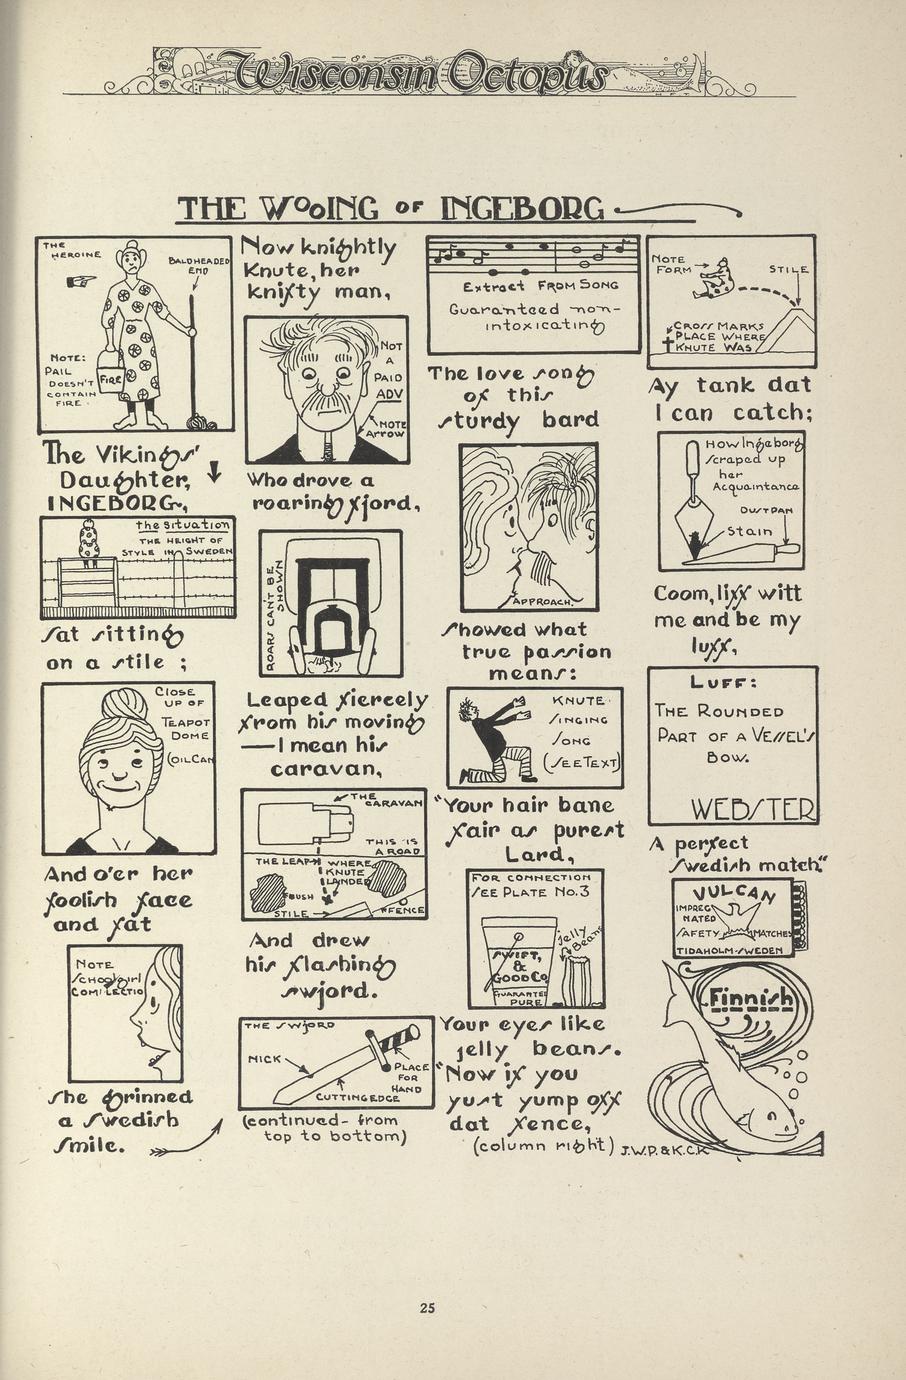 Wisconsin Octopus
THE WOOING OF INGEBORG
THE
HEROINE
BALDHEADED
END
NOTE:
PAIL
DOESN'T
CONTAIN
FIRE.
FIRE
The Vikings'
Daughter,
INGEBORG,
the situation
THE HEIGHT OF
STYLE IN SWEDEN
sat sitting
on a stile ;
CLOSE
UP OF
TEAPOT
DOME
(OIL CAN
And o'er her
foolish face
and fat
NOTE
SCHOOLgirl
COMPLECTIO
she grinned
a Swedish
Smile.
Now knightly
Knute, her
knifty man,
NOT
A
PAID
ADV
NOTE
ARROW
Who drove a
roaring fjord,
ROARS CAN'T BE
SHOWN
Leaped fiercely
from his moving
—I mean his
caravan,
THE
CARAVAN
THIS IS
A ROAD
THE LEAP
WHERE
KNUTE
LANDED
BUSH
STILE
FENCE
And drew
his flashing
swjord.
THE SWJORD
NICK
PLACE
FOR
HAND
CUTTING EDGE
(continued - from
top to bottom)
Extract FROM SONG
Guaranteed non-
intoxicating
The love song
of this
sturdy bard
APPROACH.
showed what
true passion
means:
KNUTE
SINGING
SONG
(SEE TEXT)
"Your hair bane
fair as purest
Lard,
FOR CONNECTION
SEE PLATE NO. 3
jelly
Beans
SWIFT,
&
GOOD CO
GUARANTEE
PURE
Your eyes like
jelly beans.
"Now if you
yust yump off
dat fence,
(column right)
NOTE
FORM
STILE
CROSS MARKS
PLACE WHERE
KNUTE WAS
Ay tank dat
I can catch;
HOW Ingeborg
scraped up
her
Acquaintance
DUSTPAN
Stain
Coom, liff witt
me and be my
luff,
LUFF:
THE ROUNDED
PART OF A VESSEL'S
BOW.
WEBSTER
A perfect
Swedish match."
VULCAN
IMPREG
NATED
SAFETY MATCHES
TIDAHOLM-SWEDEN
Finnish
J.W.P. & K.C.K
25